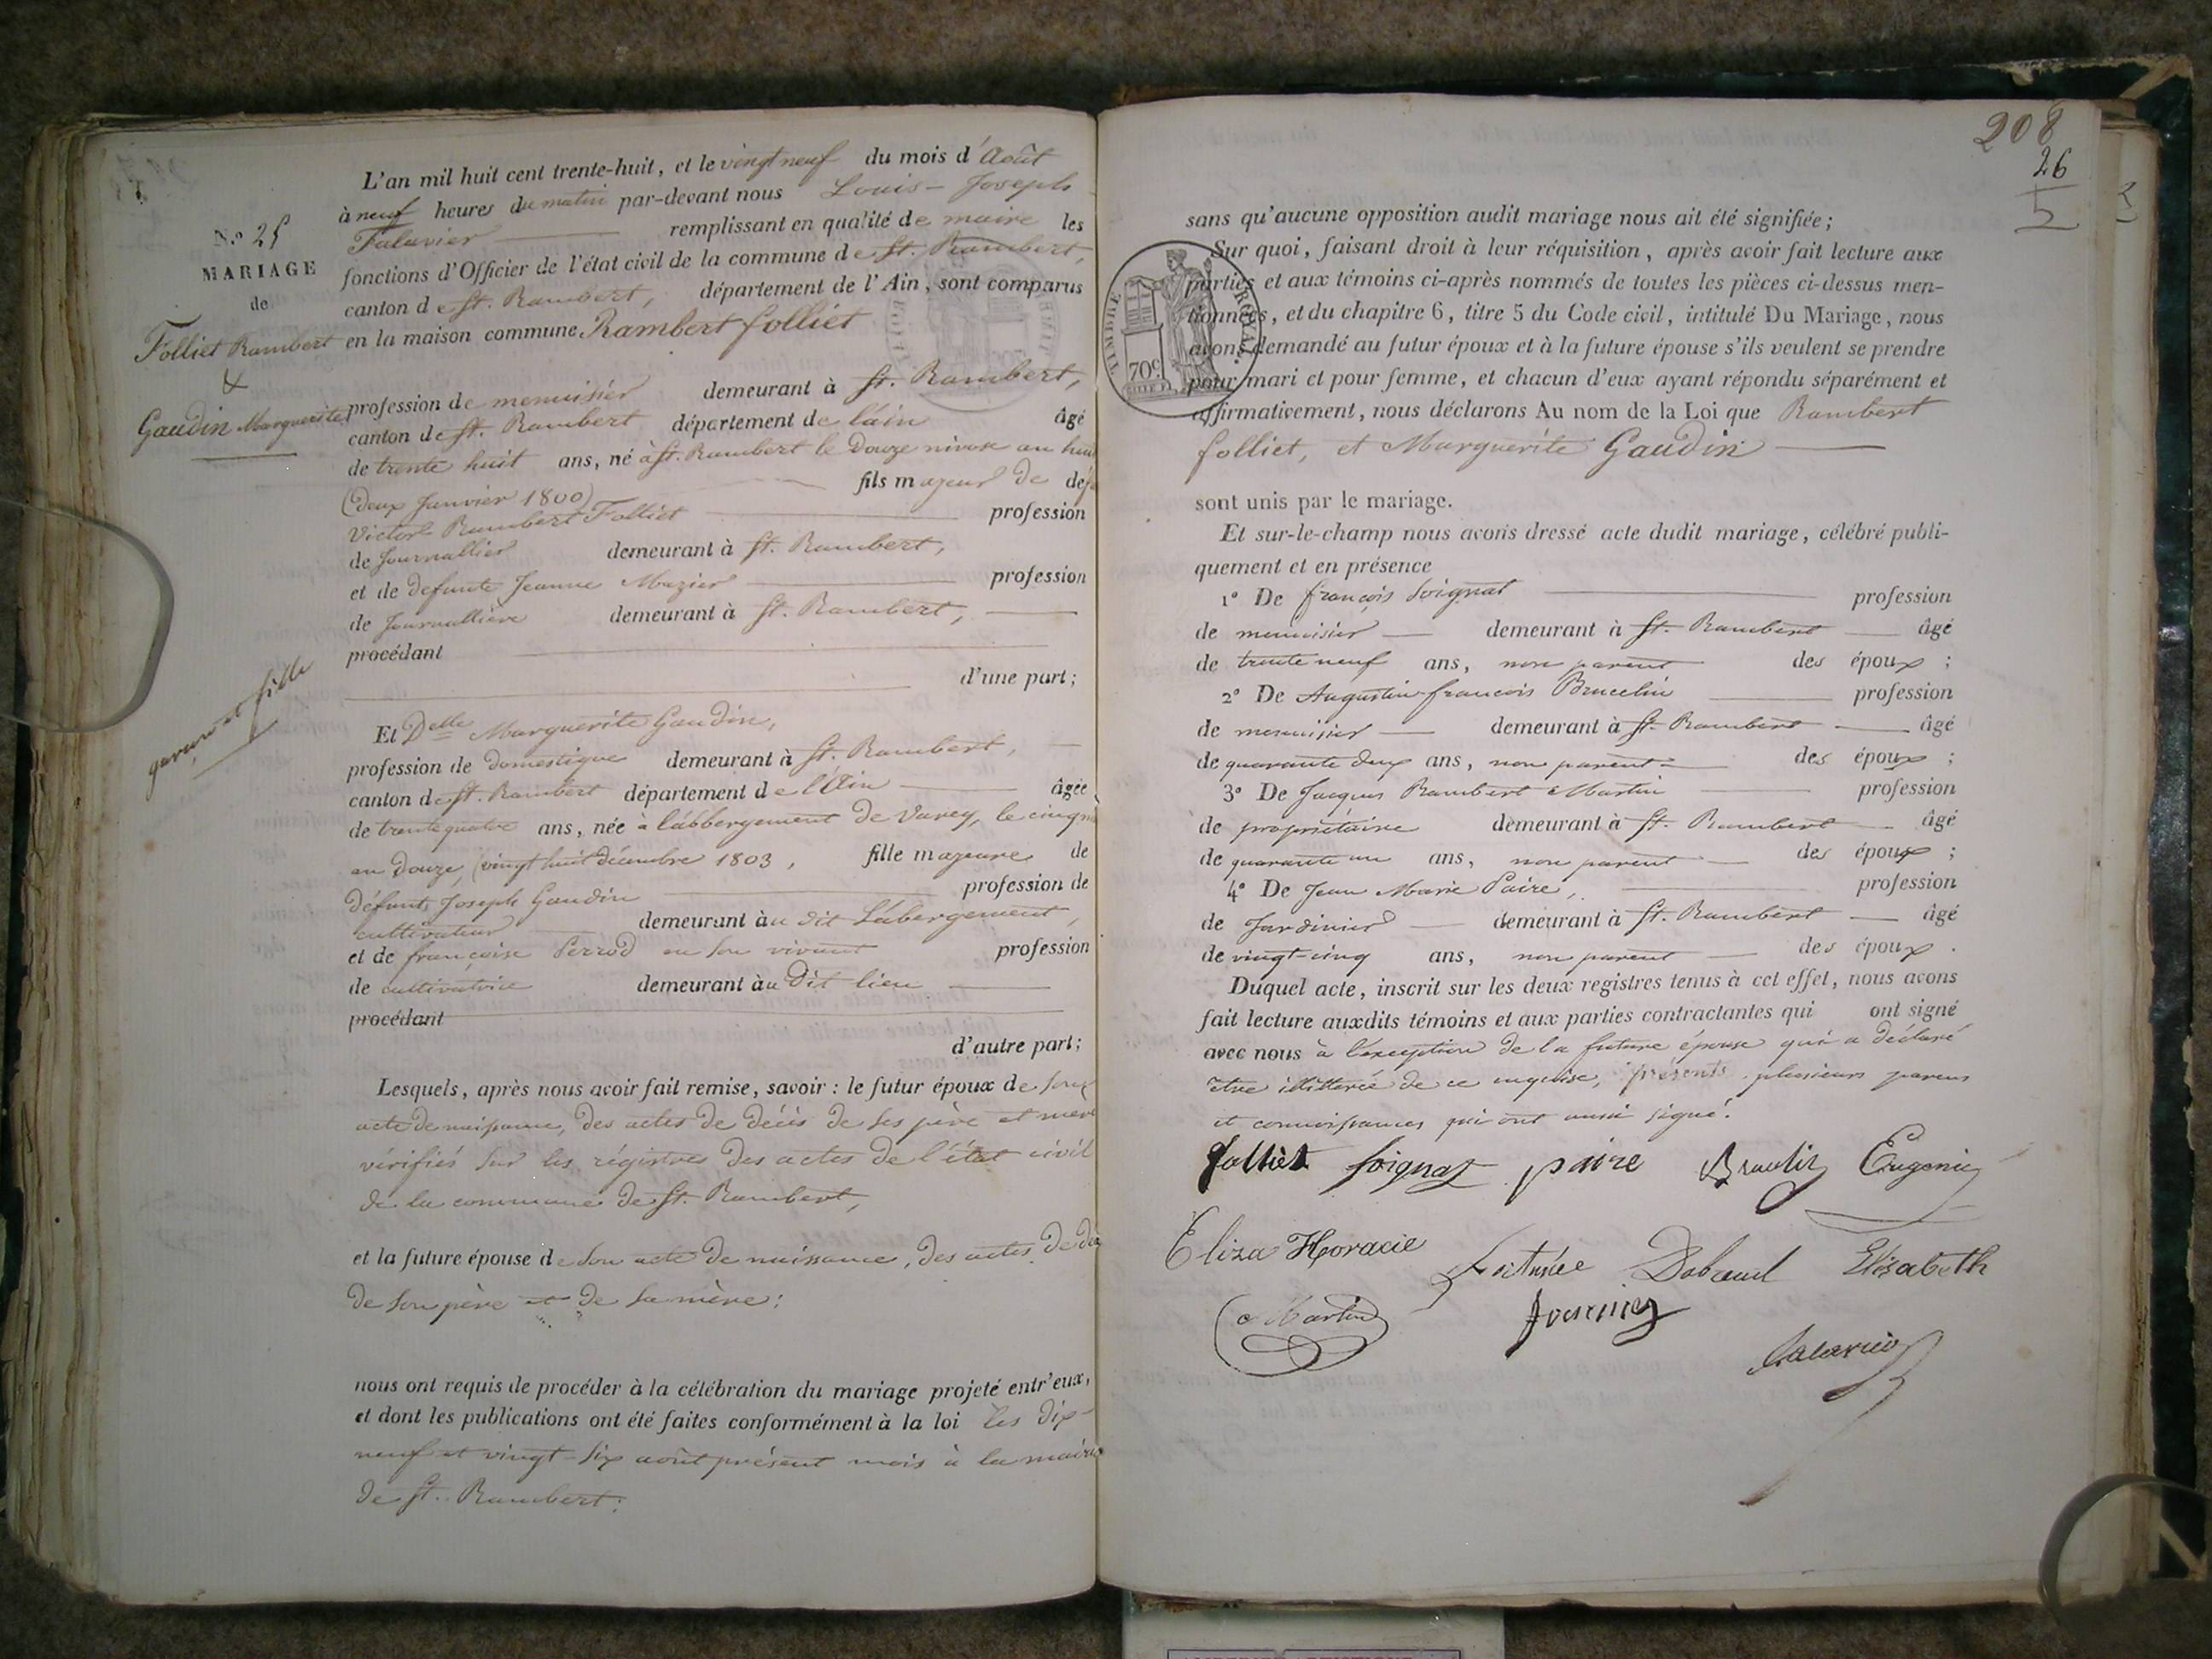 L'an mil huit cent trente-huit, et le vingt neuf du mois d'Août
à neuf heures du matin par-devant nous Louis-Joseph
remplissant en qualité de maire les
fonctions d'Officier de l'état civil de la commune de St. Rambert,
canton de St. Rambert, département de l'Ain, sont comparus
en la maison commune Rambert folliet
N.º 25
MARIAGE
de
Folliet Rambert
&
Gaudin Marguerite
profession de menuisier demeurant à St. Rambert,
canton de St. Rambert département de l'ain âgé
de trente huit ans, né à St. Rambert le Douze nivose an huit
(deux Janvier 1800) fils majeur de
Victor Rambert Folliet profession
de Journallier demeurant à St. Rambert,
et de defunte Jeanne Mazier profession
de Journallière demeurant à St. Rambert,
procédant
d'une part;
garçon et fille
Et Delle Marguerite Gaudin,
profession de Domestique demeurant à St. Rambert,
canton de St. Rambert département de l'Ain âgée
de trente quatre ans, née à l'abbergement de Varey, le cinq
an Douze, (vingt huit décembre 1803, fille majeure de
Défunt Joseph Gaudin profession de
cultivateur demeurant au dit L'abergement,
et de françoise Perrod en son vivant profession
de cultivatrice demeurant au Dit lieu
procédant
d'autre part;
Lesquels, après nous avoir fait remise, savoir: le futur époux de son
acte de naissance, des actes de décès de ses père et mère
vérifiés sur les régistres des actes de l'état civil
de la commune de St. Rambert,
et la future épouse de son acte de naissance, des actes de
de son père et de sa mère;
nous ont requis de procéder à la célébration du mariage projeté entr'eux,
et dont les publications ont été faites conformément à la loi les dix-
neuf et vingt-six août présent mois à la mairie
de St. Rambert;
208
26
sans qu'aucune opposition audit mariage nous ait été signifiée;
Sur quoi, faisant droit à leur réquisition, après avoir fait lecture aux
parties et aux témoins ci-après nommés de toutes les pièces ci-dessus men-
tionnées, et du chapitre 6, titre 5 du Code civil, intitulé Du Mariage, nous
avons demandé au futur époux et à la future épouse s'ils veulent se prendre
pour mari et pour femme, et chacun d'eux ayant répondu séparément et
affirmativement, nous déclarons Au nom de la Loi que Rambert
folliet, et Marguerite Gaudin
TIMBRE ROYAL
70c
sont unis par le mariage.
Et sur-le-champ nous avons dressé acte dudit mariage, célébré publi-
quement et en présence
1º De françois Soignat profession
de menuisier demeurant à St. Rambert âgé
de trente neuf ans, non parent des époux;
2º De Augustin françois profession
de menuisier demeurant à St. Rambert âgé
de quarante deux ans, non parent des époux;
3º De Jacques Rambert Martin profession
de propriétaire demeurant à St. Rambert âgé
de quarante un ans, non parent des époux;
4º De Jean Marie Paire, profession
de Jardinier demeurant à St. Rambert âgé
de vingt-cinq ans, non parent des époux.
Duquel acte, inscrit sur les deux registres tenus à cet effet, nous avons
fait lecture auxdits témoins et aux parties contractantes qui ont signé
avec nous à l'exception de la future épouse qui a déclaré
être illitterée de ce enquise, présents plusieurs parens
et connoissances qui ont aussi signé.
folliet Soignat paire Eugenie
Eliza Horacie Elisabeth
Martin